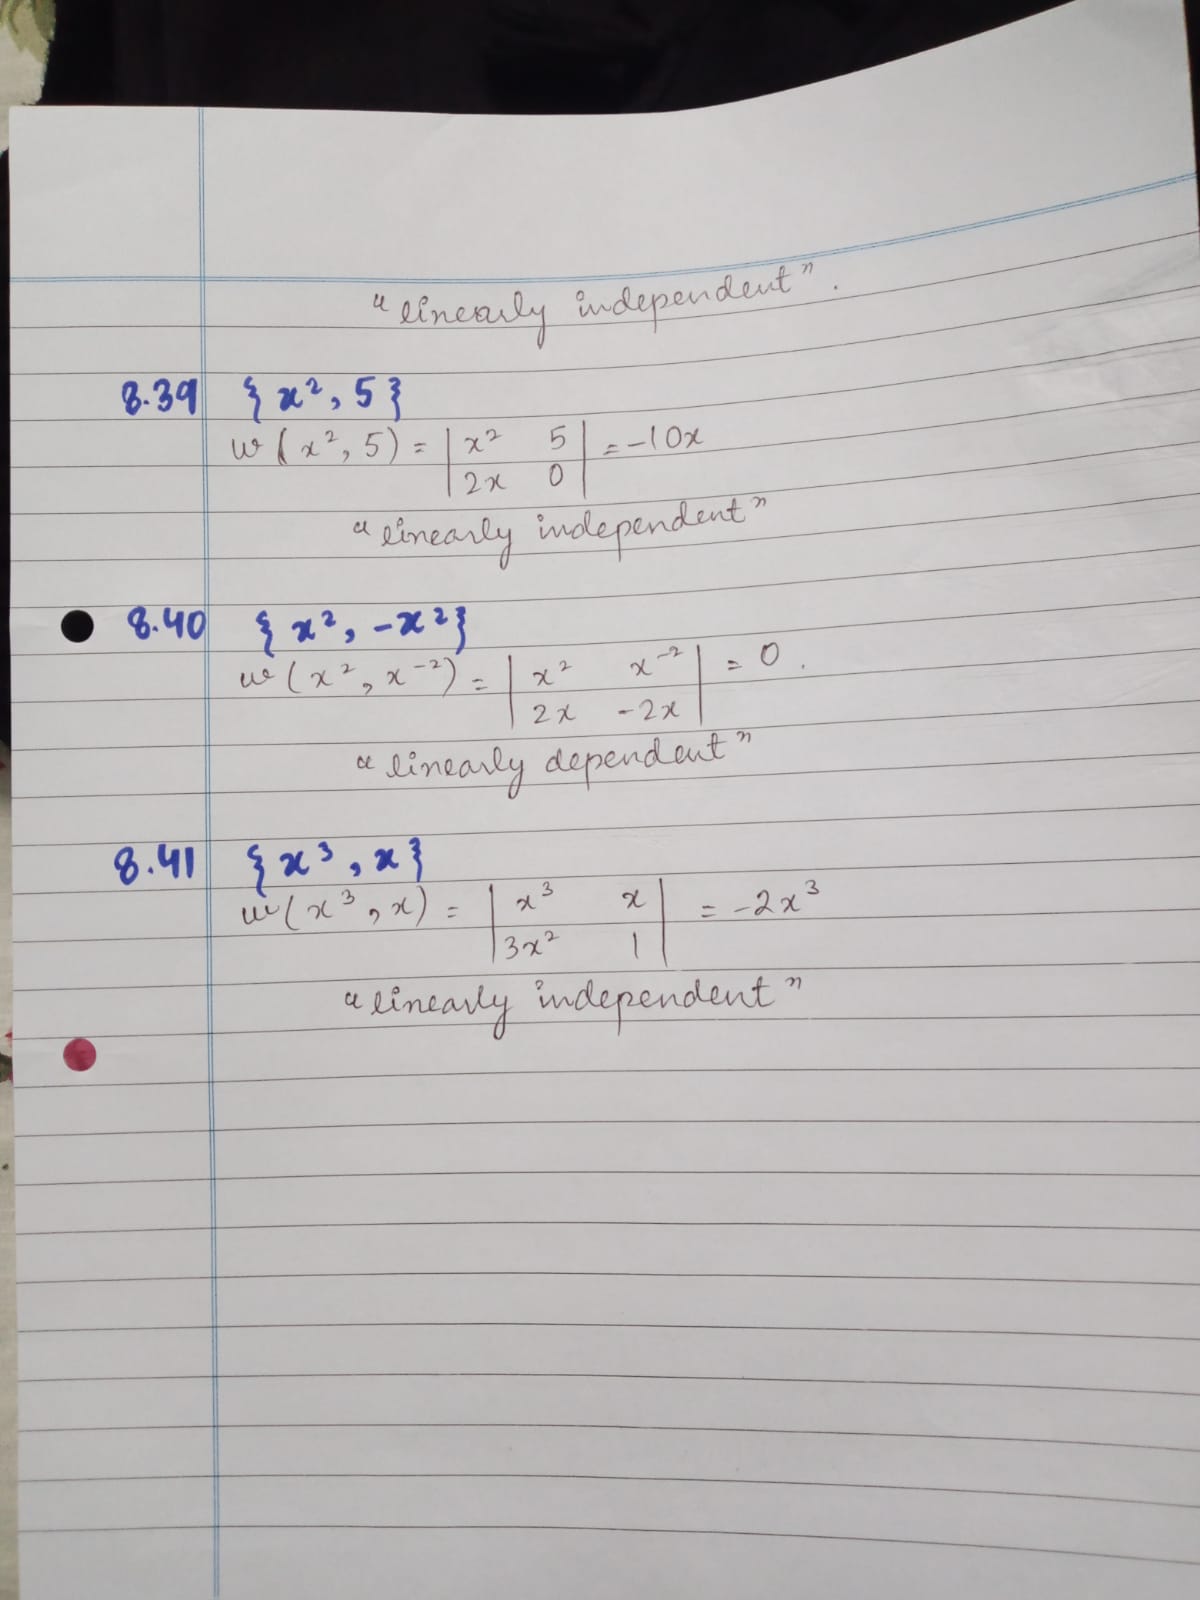 "linearly independent".
8.39 { x², 5 }
w ( x², 5 ) = | x² 5 | = -10x
| 2x 0 |
"linearly independent"
8.40 { x², -x² }
w ( x², x⁻² ) = | x² x⁻² | = 0 .
| 2x -2x |
"linearly dependent"
8.41 { x³, x }
w ( x³, x ) = | x³ x | = -2x³
| 3x² 1 |
"linearly independent"